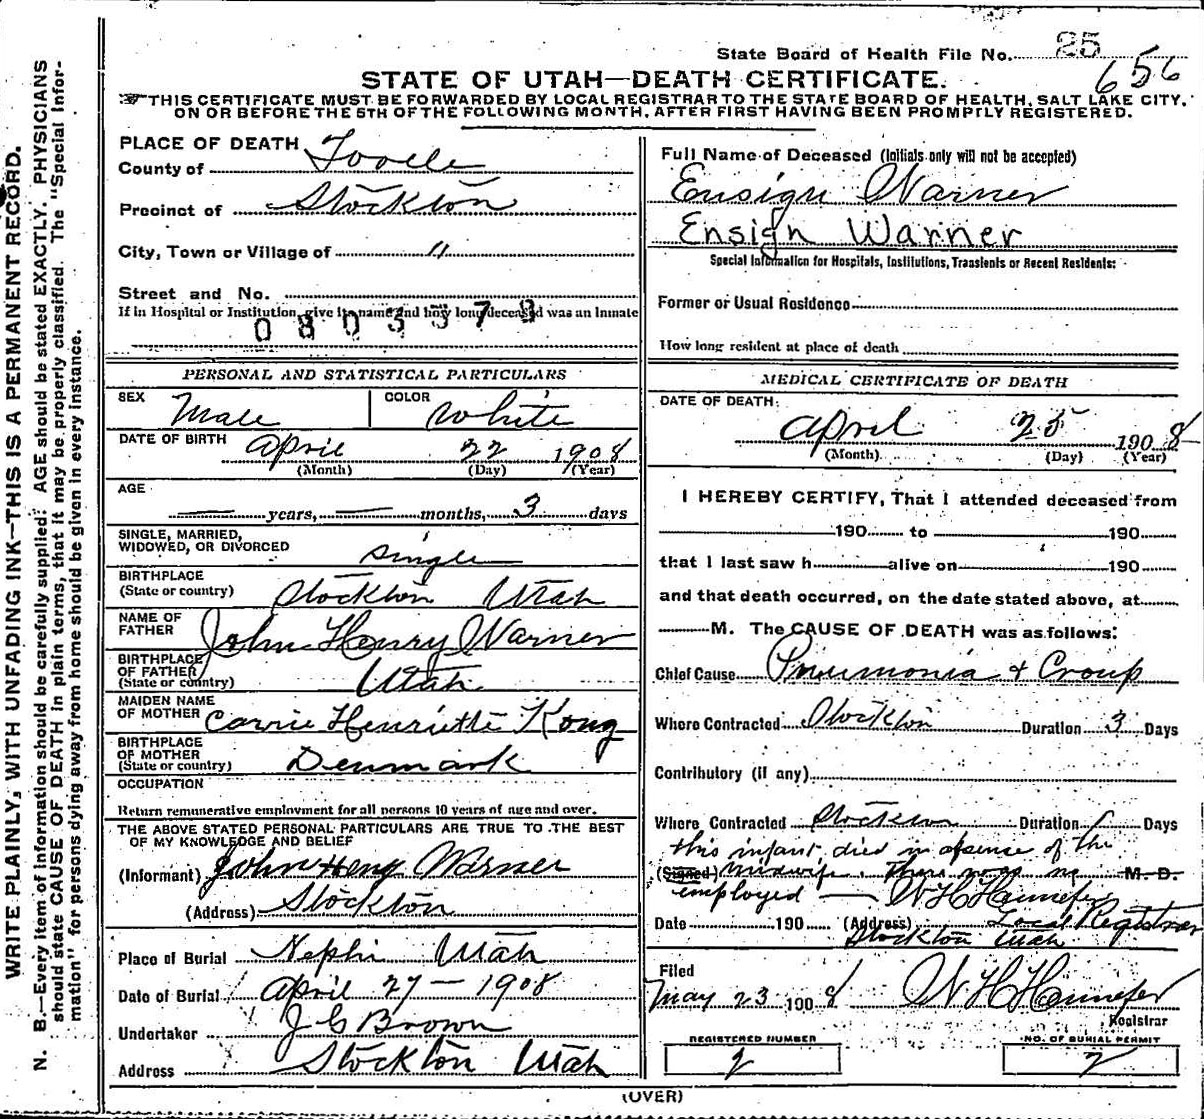 State Board of Health File No. 25
656
STATE OF UTAH—DEATH CERTIFICATE.
THIS CERTIFICATE MUST BE FORWARDED BY LOCAL REGISTRAR TO THE STATE BOARD OF HEALTH, SALT LAKE CITY,
ON OR BEFORE THE 5TH OF THE FOLLOWING MONTH, AFTER FIRST HAVING BEEN PROMPTLY REGISTERED.
WRITE PLAINLY, WITH UNFADING INK—THIS IS A PERMANENT RECORD.
N. B.—Every item of information should be carefully supplied. AGE should be stated EXACTLY. PHYSICIANS
should state CAUSE OF DEATH in plain terms, that it may be properly classified. The "Special Infor-
mation" for persons dying away from home should be given in every instance.
PLACE OF DEATH
County of Tooele
Precinct of Stockton
City, Town or Village of "
Street and No.
If in Hospital or Institution, give its name and how long deceased was an Inmate
PERSONAL AND STATISTICAL PARTICULARS
SEX Male COLOR White
DATE OF BIRTH April 22 1908
(Month) (Day) (Year)
AGE
— years, — months, 3 days
SINGLE, MARRIED,
WIDOWED, OR DIVORCED single
BIRTHPLACE
(State or country) Stockton Utah
NAME OF
FATHER John Henry Warner
BIRTHPLACE
OF FATHER
(State or country) Utah
MAIDEN NAME
OF MOTHER Carrie Henriette Kong
BIRTHPLACE
OF MOTHER
(State or country) Denmark
OCCUPATION
Return remunerative employment for all persons 10 years of age and over.
THE ABOVE STATED PERSONAL PARTICULARS ARE TRUE TO THE BEST
OF MY KNOWLEDGE AND BELIEF
(Informant) John Heny Warner
(Address) Stockton
Place of Burial Nephi Utah
Date of Burial April 27 — 1908
Undertaker J C Brown
Address Stockton Utah
Full Name of Deceased (Initials only will not be accepted)
Ensign Warner
Ensign Warner
Special Information for Hospitals, Institutions, Transients or Recent Residents:
Former or Usual Residence
How long resident at place of death
MEDICAL CERTIFICATE OF DEATH
DATE OF DEATH:
April 25 1908
(Month) (Day) (Year)
I HEREBY CERTIFY, That I attended deceased from
190 to 190
that I last saw h alive on 190
and that death occurred, on the date stated above, at
M. The CAUSE OF DEATH was as follows:
Chief Cause Pneumonia & Croup
Where Contracted Stockton Duration 3 Days
Contributory (if any)
Where Contracted Stockton Duration Days
this infant died in absence of the
(Signed) midwife. There was no M. D.
employed — W H Hennefer
Date 190 (Address) Local Registrar
Stockton Utah
Filed
May 23 1908 W H Hennefer
Registrar
REGISTERED NUMBER
2
NO. OF BURIAL PERMIT
2
(OVER)